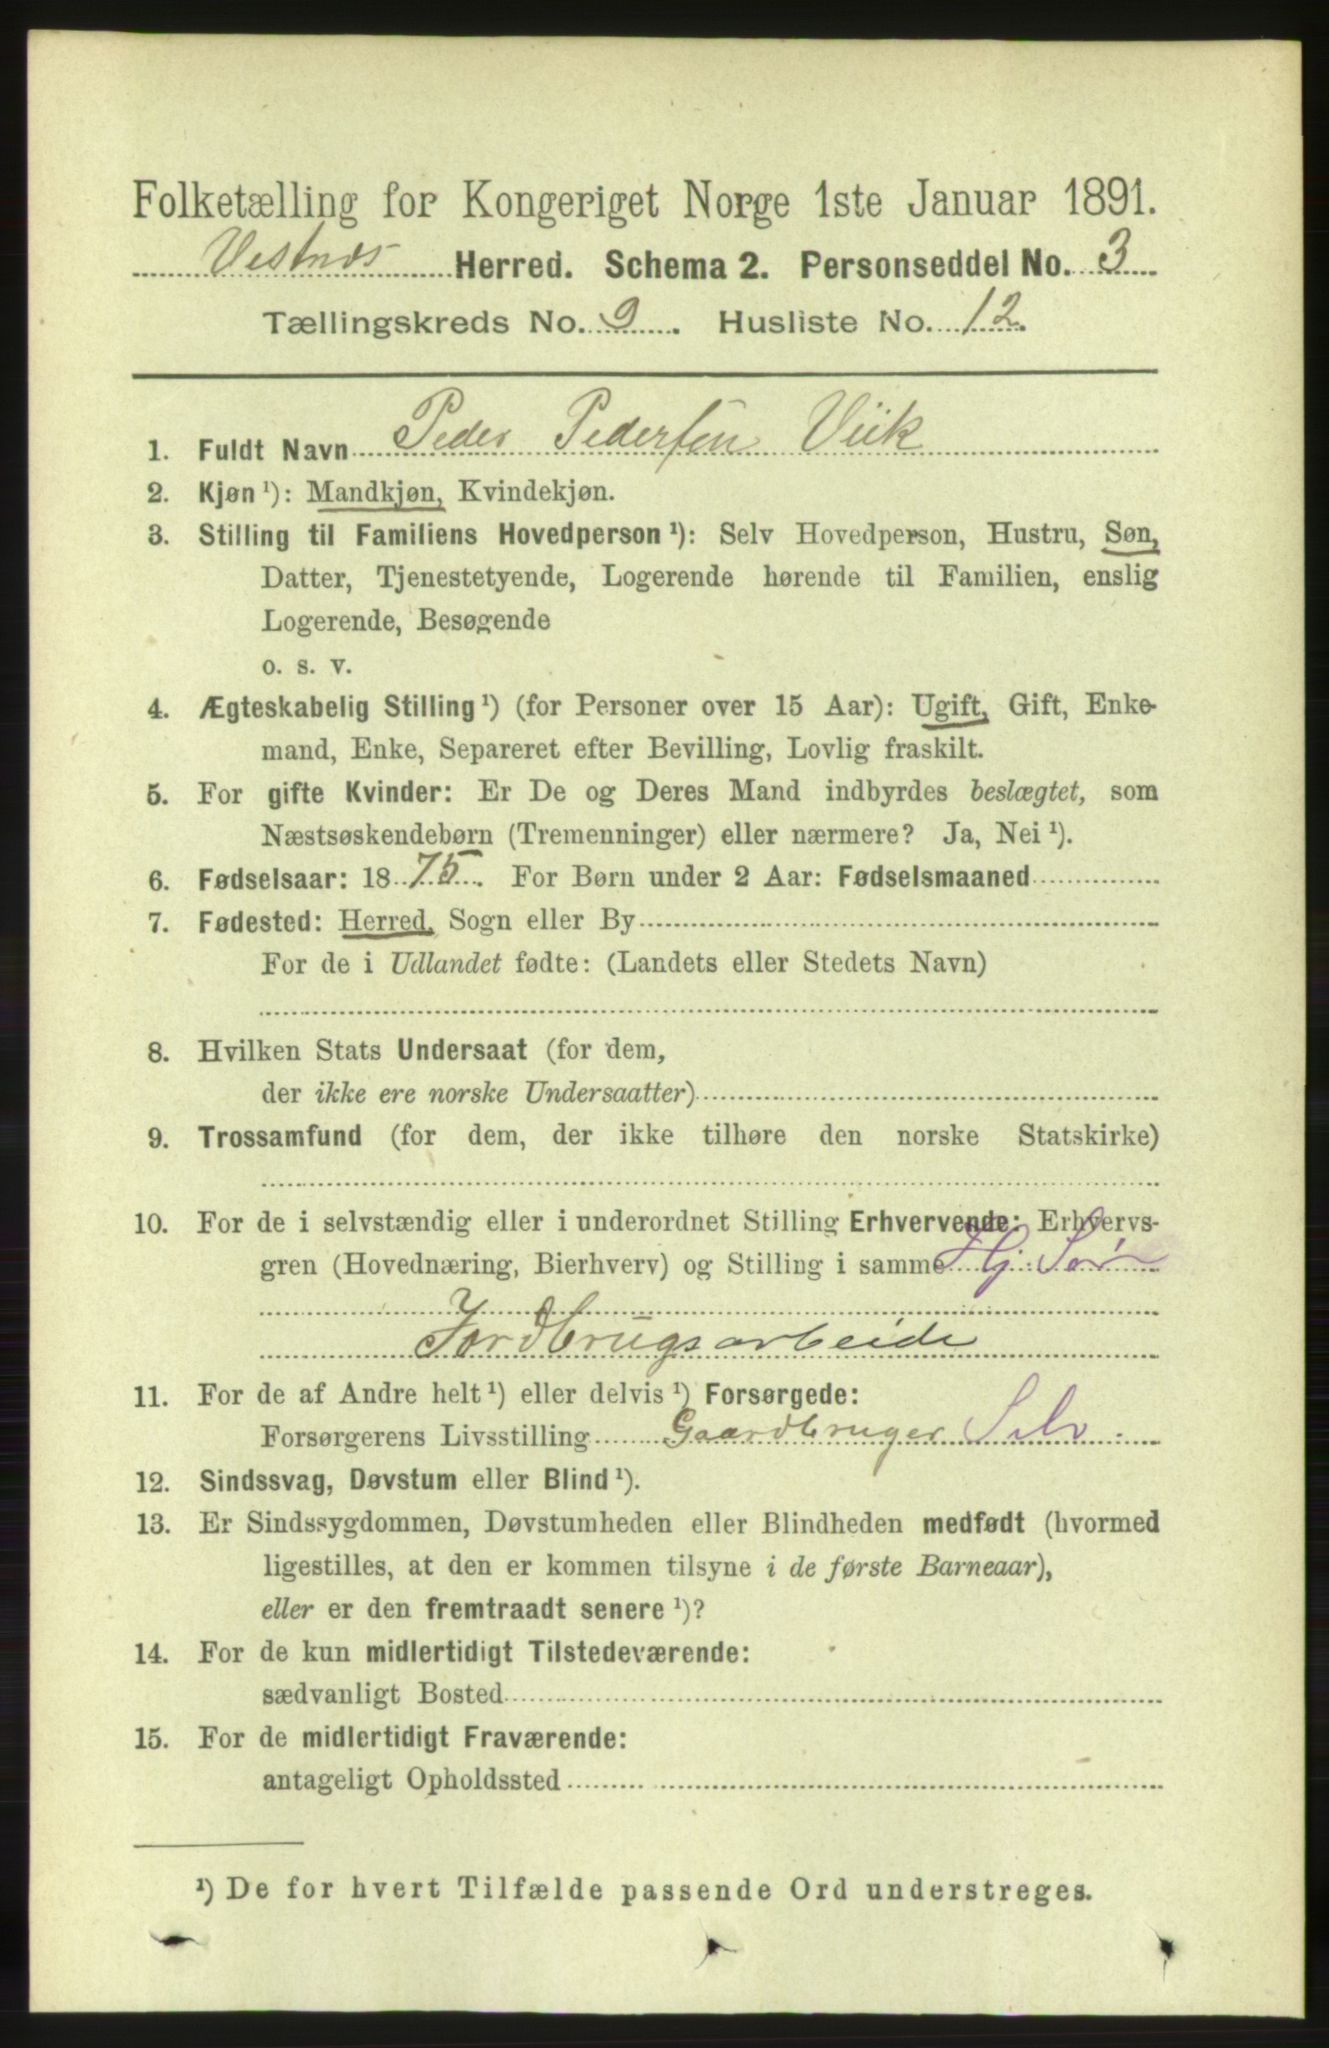 Folketælling for Kongeriget Norge 1ste Januar 1891.
Vestnes Herred. Schema 2. Personseddel No. 3
Tællingskreds No. 9. Husliste No. 12.
1. Fuldt Navn Peder Pedersen Viik
2. Kjøn ¹): Mandkjøn, Kvindekjøn.
3. Stilling til Familiens Hovedperson ¹): Selv Hovedperson, Hustru, Søn,
Datter, Tjenestetyende, Logerende hørende til Familien, enslig
Logerende, Besøgende
o. s. v.
4. Ægteskabelig Stilling ¹) (for Personer over 15 Aar): Ugift, Gift, Enke-
mand, Enke, Separeret efter Bevilling, Lovlig fraskilt.
5. For gifte Kvinder: Er De og Deres Mand indbyrdes beslægtet, som
Næstsøskendebørn (Tremenninger) eller nærmere? Ja, Nei ¹).
6. Fødselsaar: 1875. For Børn under 2 Aar: Fødselsmaaned
7. Fødested: Herred, Sogn eller By
For de i Udlandet fødte: (Landets eller Stedets Navn)
8. Hvilken Stats Undersaat (for dem,
der ikke ere norske Undersaatter)
9. Trossamfund (for dem, der ikke tilhøre den norske Statskirke)
10. For de i selvstændig eller i underordnet Stilling Erhvervende: Erhvervs-
gren (Hovednæring, Bierhverv) og Stilling i samme
Jordbrugsarbeide
11. For de af Andre helt ¹) eller delvis ¹) Forsørgede:
Forsørgerens Livsstilling Gaardbruger Selv
12. Sindssvag, Døvstum eller Blind ¹).
13. Er Sindssygdommen, Døvstumheden eller Blindheden medfødt (hvormed
ligestilles, at den er kommen tilsyne i de første Barneaar),
eller er den fremtraadt senere ¹)?
14. For de kun midlertidigt Tilstedeværende:
sædvanligt Bosted
15. For de midlertidigt Fraværende:
antageligt Opholdssted
¹) De for hvert Tilfælde passende Ord understreges.